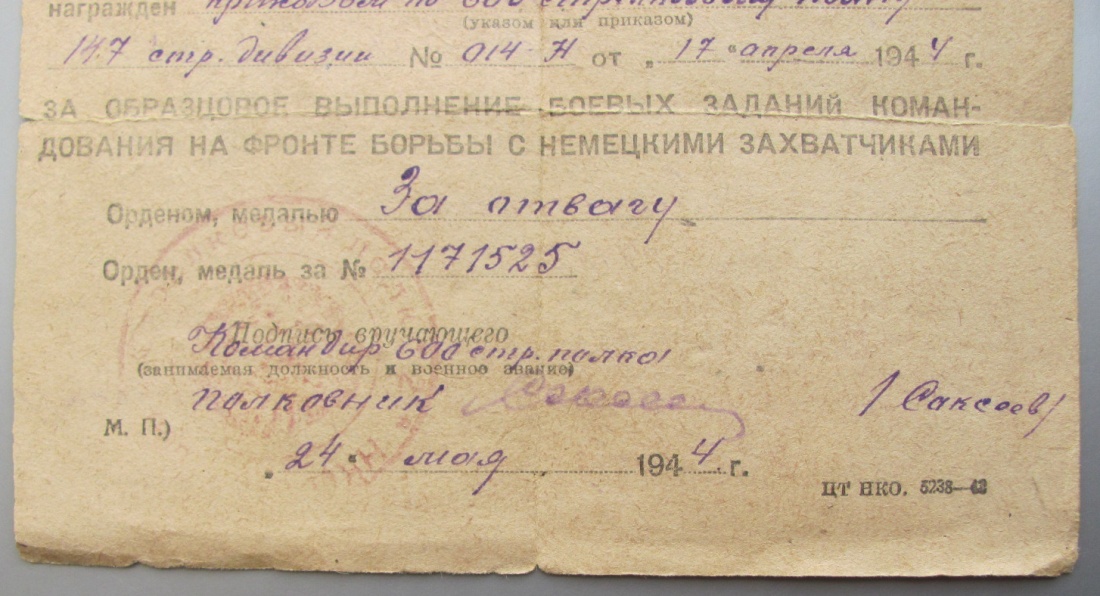 награжден приказом по 600 стрелковому полку
(указом или приказом)
147 стр. дивизии № 014 Н от „ 17 “ апреля 1944 г.
ЗА ОБРАЗЦОВОЕ ВЫПОЛНЕНИЕ БОЕВЫХ ЗАДАНИЙ КОМАН-
ДОВАНИЯ НА ФРОНТЕ БОРЬБЫ С НЕМЕЦКИМИ ЗАХВАТЧИКАМИ
Орденом, медалью За отвагу
Орден, медаль за № 1171525
Подпись вручающего
Командир 600 стр. полка
(занимаемая должность и военное звание)
полковник /Саксеев/
М. П.)
„ 24 “ мая 1944 г.
ЦТ НКО. 5238—42